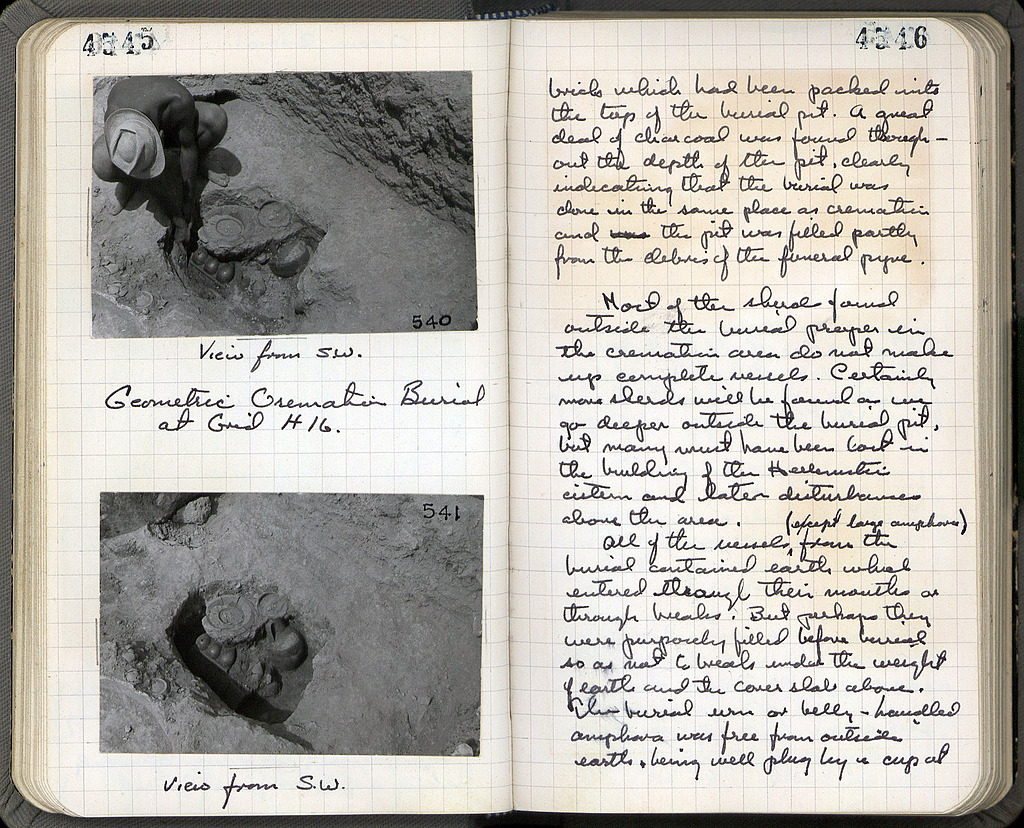 4545
540
View from S.W.
Geometric Cremation Burial
at Grid H 16.
541
View from S.W.
4546
bricks which had been packed into
the top of the burial pit. A great
deal of charcoal was found through-
out the depth of the pit, clearly
indicating that the burial was
done in the same place as cremation
and the pit was filled partly
from the debris of the funeral pyre.
Most of the sherds found
outside the burial proper in
the cremation area do not make
up complete vessels. Certainly
more sherds will be found as we
go deeper outside the burial pit,
but many must have been lost in
the building of the Hellenistic
cistern and later disturbances
above the area.
(except large amphora)
All of the vessels, from the
burial contained earth which
entered through their mouths or
through breaks. But perhaps they
were purposely filled before burial
so as not to break under the weight
of earth and the cover slab above.
The burial urn or belly-handled
amphora was free from outside
earth, being well plug by a cup at